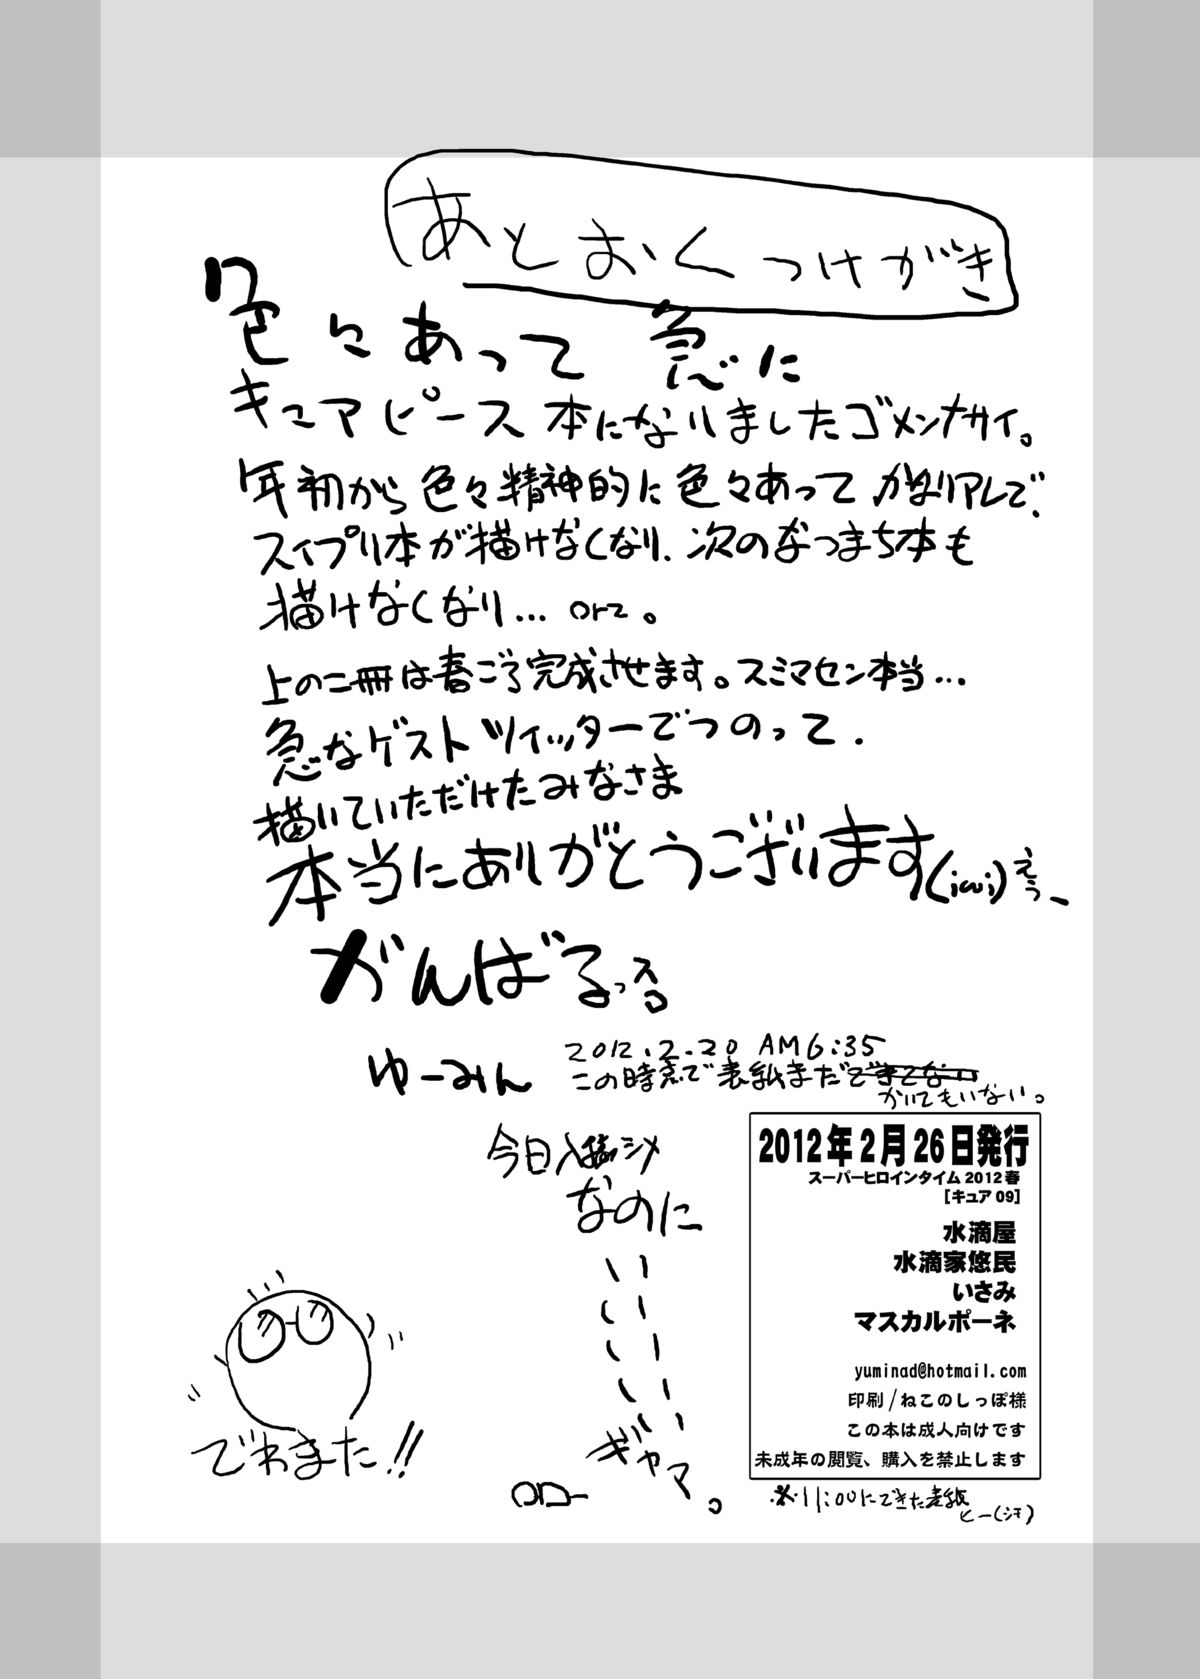 あとおくつけがき
色々あって 急に
キュアピース本になりましたゴメンナサイ。
年初から色々精神的に色々あってかなりアレで、
スイプリ本が描けなくなり、次のなつまち本も
描けなくなり…orz。
上の二冊は春ごろ完成させます。スミマセン本当…
急なゲストツイッターでつのって、
描いていただけたみなさま
本当にありがとうございます(iωi)えぅー
がんばるっス
ゆーみん
2012.2.20 AM6:35
この時点で表紙まだできてない
かいてもいない。
今日入稿シメ
なのに
いいいいい
ギャマ。
でわまた!!
2012年2月26日発行
スーパーヒロインタイム2012春
[キュア09]
水滴屋
水滴家悠民
いさみ
マスカルポーネ
yuminad@hotmail.com
印刷/ねこのしっぽ様
この本は成人向けです
未成年の閲覧、購入を禁止します
※11:00にできた表紙
ヒー(シモ)